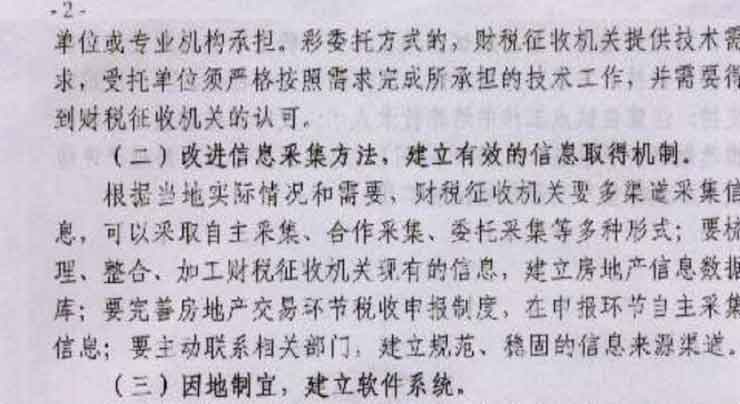 -2-
单位或专业机构承担。彩委托方式的，财税征收机关提供技术需
求，受托单位须严格按照需求完成所承担的技术工作，并需要得
到财税征收机关的认可。
（二）改进信息采集方法、建立有效的信息取得机制。
根据当地实际情况和需要，财税征收机关要多渠道采集信
息，可以采取自主采集、合作采集、委托采集等多种形式；要梳
理、整合、加工财税征收机关现有的信息，建立房地产信息数据
库；要完善房地产交易环节税收申报制度，在申报环节自主采集
信息；要主动联系相关部门，建立规范、稳固的信息来源渠道。
（三）因地制宜，建立软件系统。